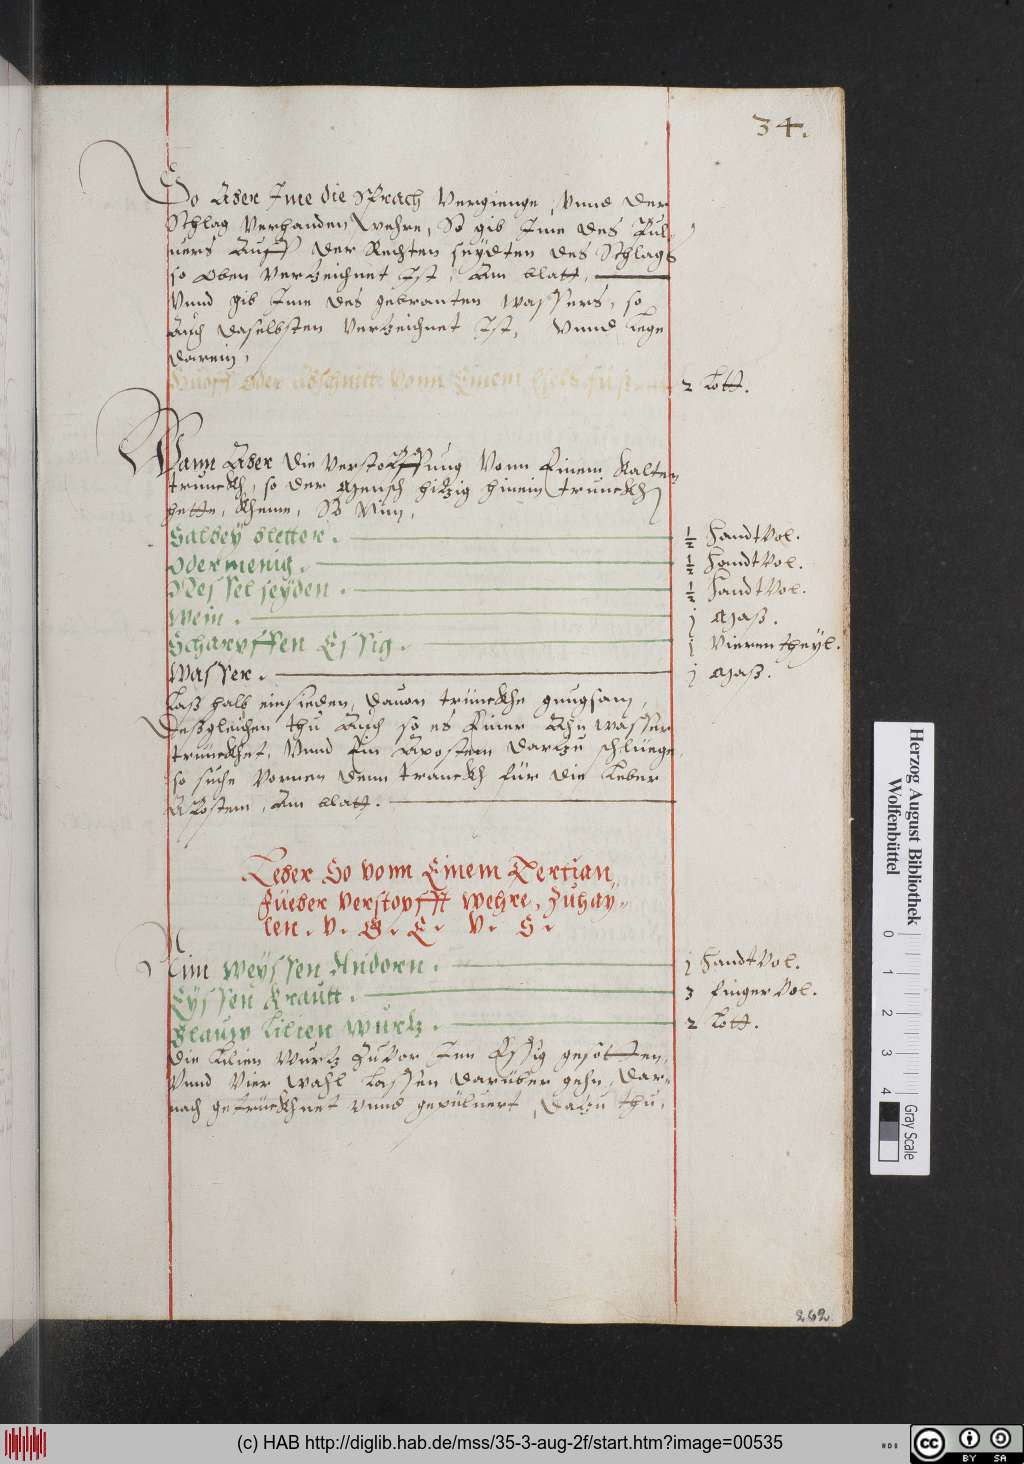 34.
So Aber Ime die Sprach Vergienge, Vnnd der
Schlag Verhanden wehre, So gib Ime des Pul-
uers Auff der Rechten seydten des Schlags
so oben Verzeichnet Ist, Am blatt,
Vnnd gib Ime des gebranten Wassers, so
Auch daselbsten Verzeichnet Ist, Vnnd lege
darein,
Oder Abschnitt Vonn Einem 2 Lott.
Wann Aber die Verstopffung Vonn Einem Kalten
trunckh, so der Mensch hitzig hinein trunckhen
hette, kheme, So Nim,
Salbey bletter. ½ Handt Vol.
Odermenig. ½ Handt Vol.
Nessel seyden. ½ Handt Vol.
Wein. j Mass.
Scharpffen Essig. j Vierentheyl.
Wasser. j Mass.
Lass halb einsieden, dauon trünckhe gnugsam,
Dessgleichen thu Auch so es Einer Ahn Wasser
trünckhet, Vnnd Ein Apostem darzu schlüege
so suche Vornen denn tranckh für die Leber
Apostem, Am blatt.
Leber So vonn Einem Tertian
Füeber Verstopfft Wehre, Zuhay-
len. V. G. E. V. S.
Nim Weyssen Andorn. j Handt Vol.
Eyssen Krautt. 3 finger Vol.
Blauw Lilien Wurtz. 2 Lott.
Die Lilien Wurtz Zuuor Inn Essig gesotten,
Vnnd Vier Mahl Lassen darüber gehn, dar-
nach getrückhnet vnnd gepüluert, dazu thu,
262
Herzog August Bibliothek
Wolfenbüttel
0 1 2 3 4
Gray Scale
(c) HAB http://diglib.hab.de/mss/35-3-aug-2f/start.htm?image=00535
cc BY SA